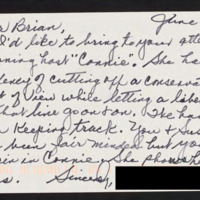 June
Brian,
I'd like to bring to your atte
ning host "Connie". She ha
dency of cutting off a conserv
t of view while letting a libe
hat line go on on. I've ha
Keeping track. You &
been fair minded but you
in in Connie. She shows h
s. Sincerely,